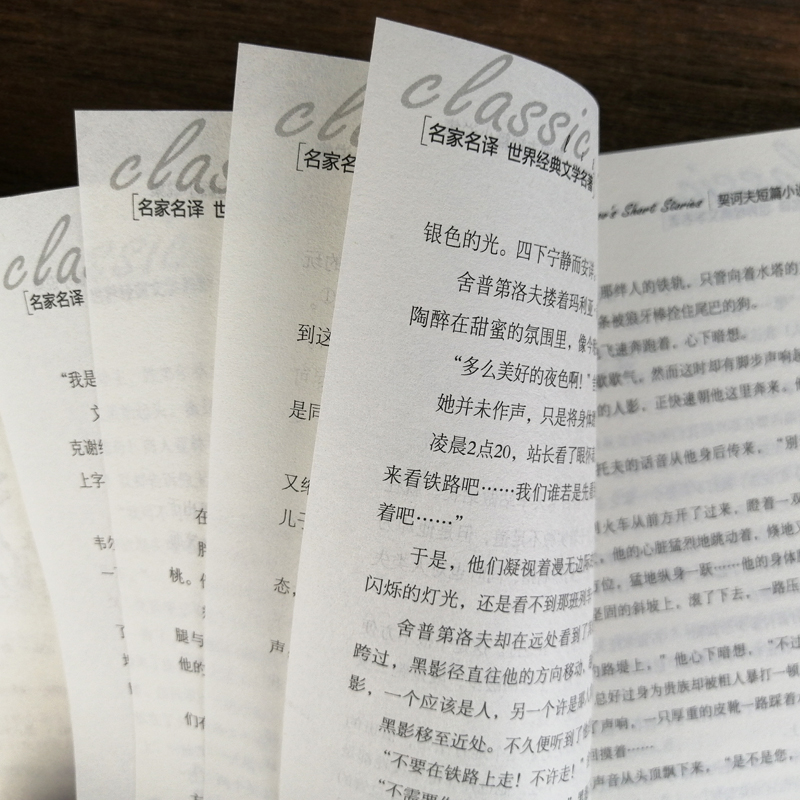 classic
名家名译 世界经典文学名著
银色的光。四下宁静而安详
舍普第洛夫搂着玛利亚
陶醉在甜蜜的氛围里,像今
“多么美好的夜色啊!”
她并未作声,只是将身体
凌晨2点20,站长看了眼怀
来看铁路吧……我们谁若是先看
着吧……”
于是,他们凝视着漫无边际
闪烁的灯光,还是看不到那班列车
舍普第洛夫却在远处看到了
跨过,黑影径直往他的方向移动,
影,一个应该是人,另一个许是
黑影移至近处。不久便听到了
“不要在铁路上走!不许走!”
“不需要
clas
名家名
到这
是同
又给
儿子
态,
声
clas
名家名译 世
在
桃。
腿与
他的
们
cla
名家名译
“我是
克谢
上字
一
了
's Short Stories 契诃夫短篇小说
那绊人的铁轨,只管向着水塔的
条被狼牙棒拴住尾巴的狗。
飞速奔跑着,心下暗想。
歇歇气,然而这时却有脚步声响
的人影,正快速朝他这里奔来,
托夫的话音从他身后传来,“别
火车从前方开了过来,瞪着一双
,他的心脏猛烈地跳动着,倏地
位,猛地纵身一跃……他的身体
坚固的斜坡上,滚了下去,一路压
路堤上,”他心下暗想,“不过
总好过身为贵族却被粗人暴打一顿
了声响,一只厚重的皮靴一路踩着
摸着……
声音从头顶飘下来,“是不是您,